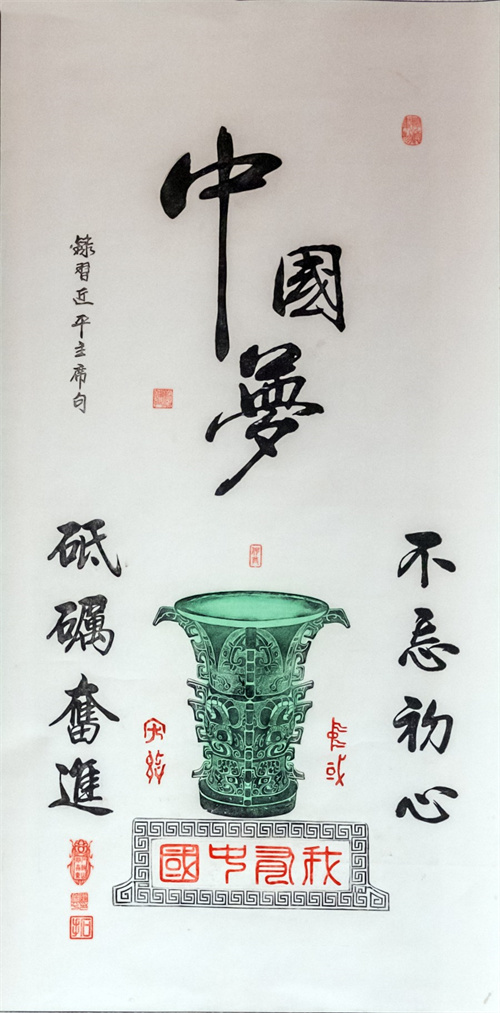 中國夢
錄習近平主席句
不忘初心
砥礪奮進
宅茲
中國